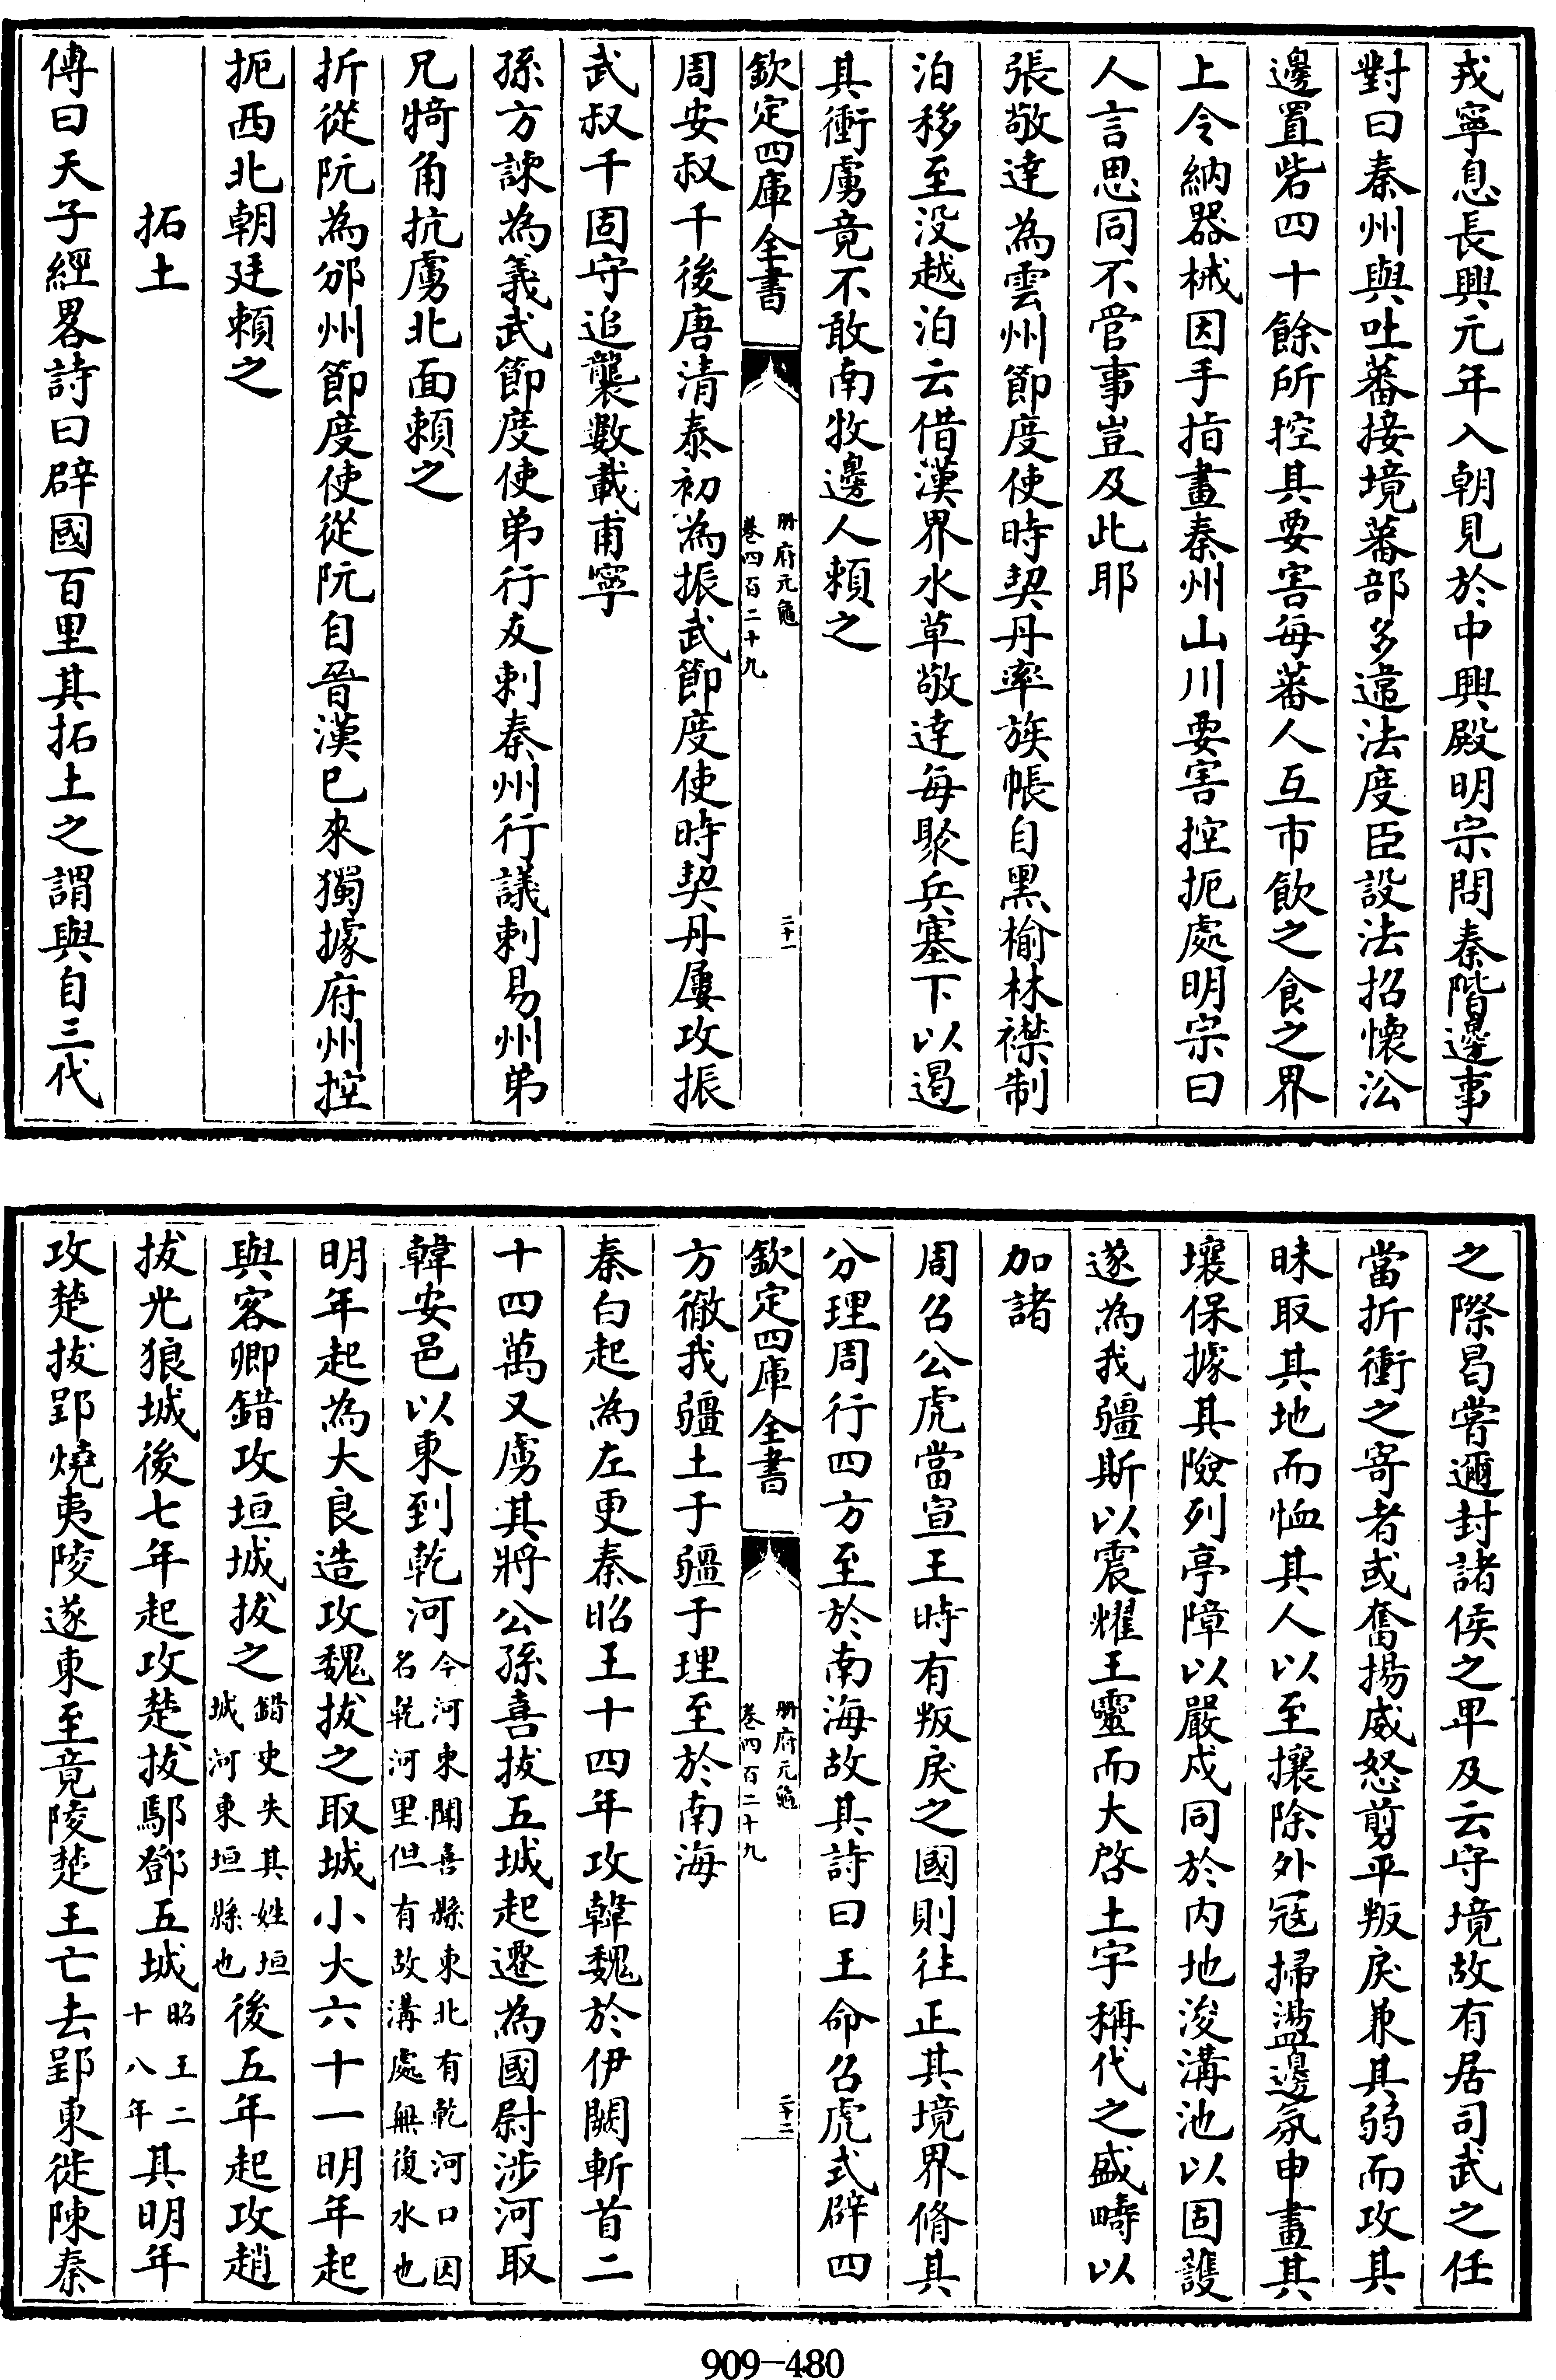 戎寧息長興元年入朝見於中興殿明宗問秦階邊事
對曰秦州與吐蕃接境蕃部多違法度臣設法招懷沿
邊置砦四十餘所控其要害每蕃人互市飲之食之界
上令納器械因手指畫秦州山川要害控扼處明宗曰
人言思同不管事豈及此耶
張敬達為雲州節度使時契丹率族帳自黑榆林襟制
泊移至没越泊云借漢界水草敬達每聚兵塞下以遏
其衝虜竟不敢南牧邊人賴之
欽定四庫全書
冊府元龜
卷四百二十九
二十一
周安叔千後唐清泰初為振武節度使時契丹屢攻振
武叔千固守追襲數載甫寧
孫方諫為義武節度使弟行友刺秦州行議刺易州弟
兄犄角抗虜北面賴之
折從阮為邠州節度使從阮自晉漢已來獨據府州控
扼西北朝廷賴之
拓土
傅曰天子經畧詩曰辟國百里其拓土之謂與自三代
之際曷嘗邇封諸侯之卑及云守境故有居司武之任
當折衝之寄者或奮揚威怒剪平叛戾兼其弱而攻其
昧取其地而恤其人以至攘除外冦掃盪邊氛申畫其
壤保據其險列亭障以嚴戍同於内地浚溝池以固護
遂為我疆斯以震耀王靈而大啓土宇稱代之盛疇以
加諸
周召公虎當宣王時有叛戾之國則往正其境界脩其
分理周行四方至於南海故其詩曰王命召虎式辟四
欽定四庫全書
冊府元龜
卷四百二十九
二十二
方徹我疆土于疆于理至於南海
秦白起為左更秦昭王十四年攻韓魏於伊闕斬首二
十四萬又虜其將公孫喜拔五城起遷為國尉涉河取
韓安邑以東到乾河今河東聞喜縣東北有乾河口因名乾河里但有故溝處無復水也
明年起為大良造攻魏拔之取城小大六十一明年起
與客卿錯攻垣城拔之錯史失其姓垣城河東垣縣也後五年起攻趙
拔光狼城後七年起攻楚拔鄢鄧五城昭王二十八年其明年
攻楚拔郢燒夷陵遂東至竟陵楚王亡去郢東徙陳秦
909-480